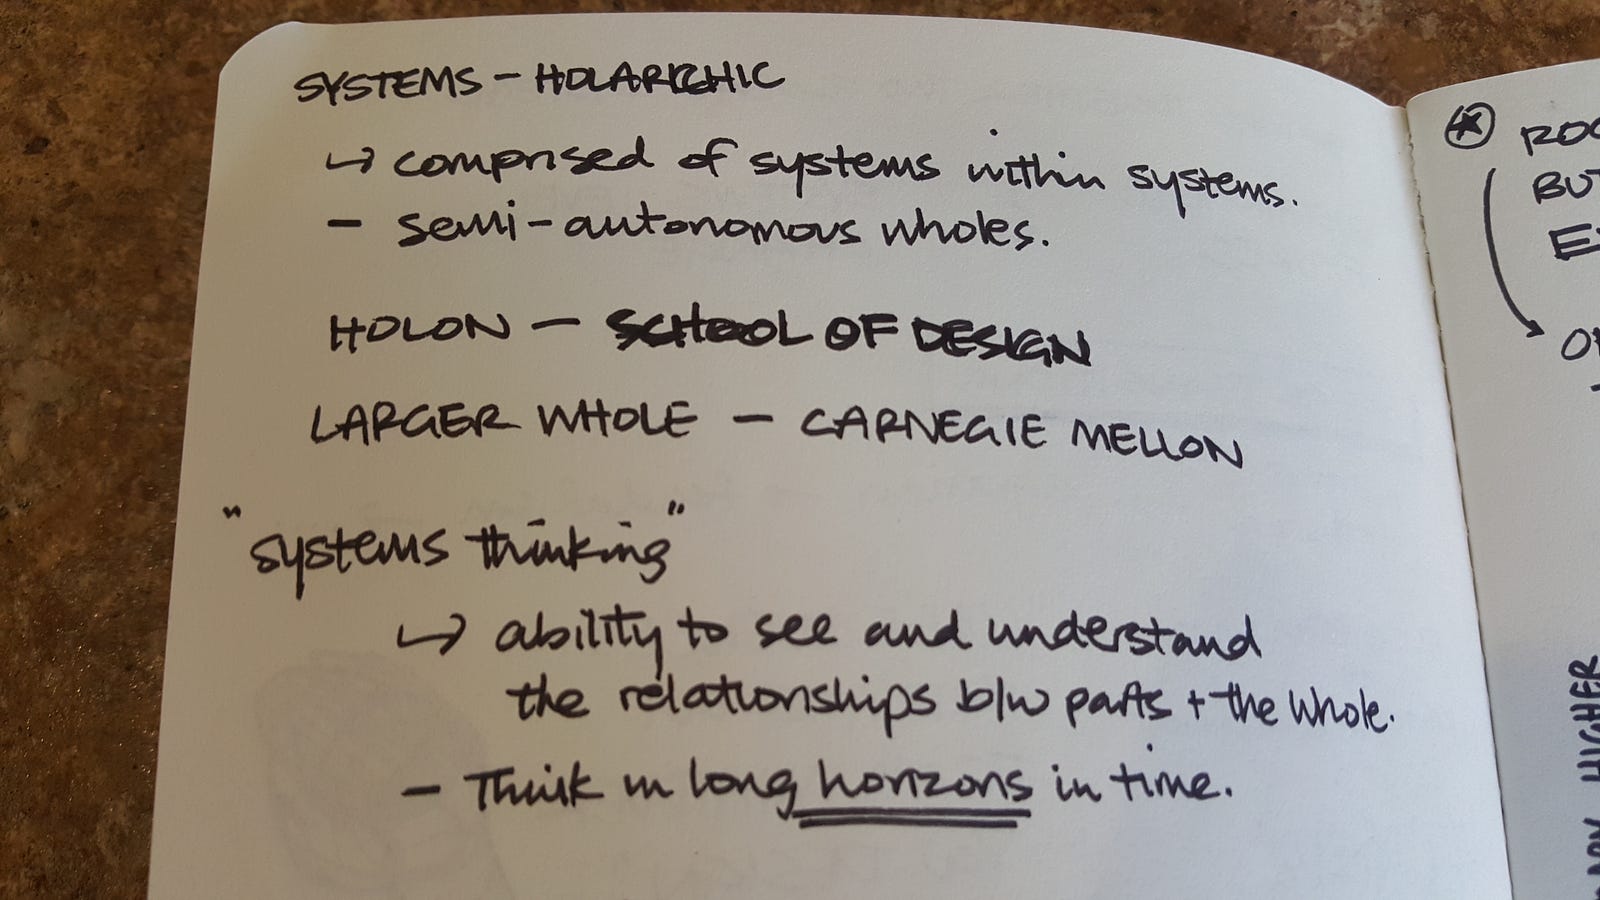 SYSTEMS – HOLARCHIC
↳ comprised of systems within systems.
– semi-autonomous wholes.
HOLON – SCHOOL OF DESIGN
LARGER WHOLE – CARNEGIE MELLON
"systems thinking"
↳ ability to see and understand
the relationships b/w parts + the whole.
– Think in long horizons in time.
BUT
HIGHER